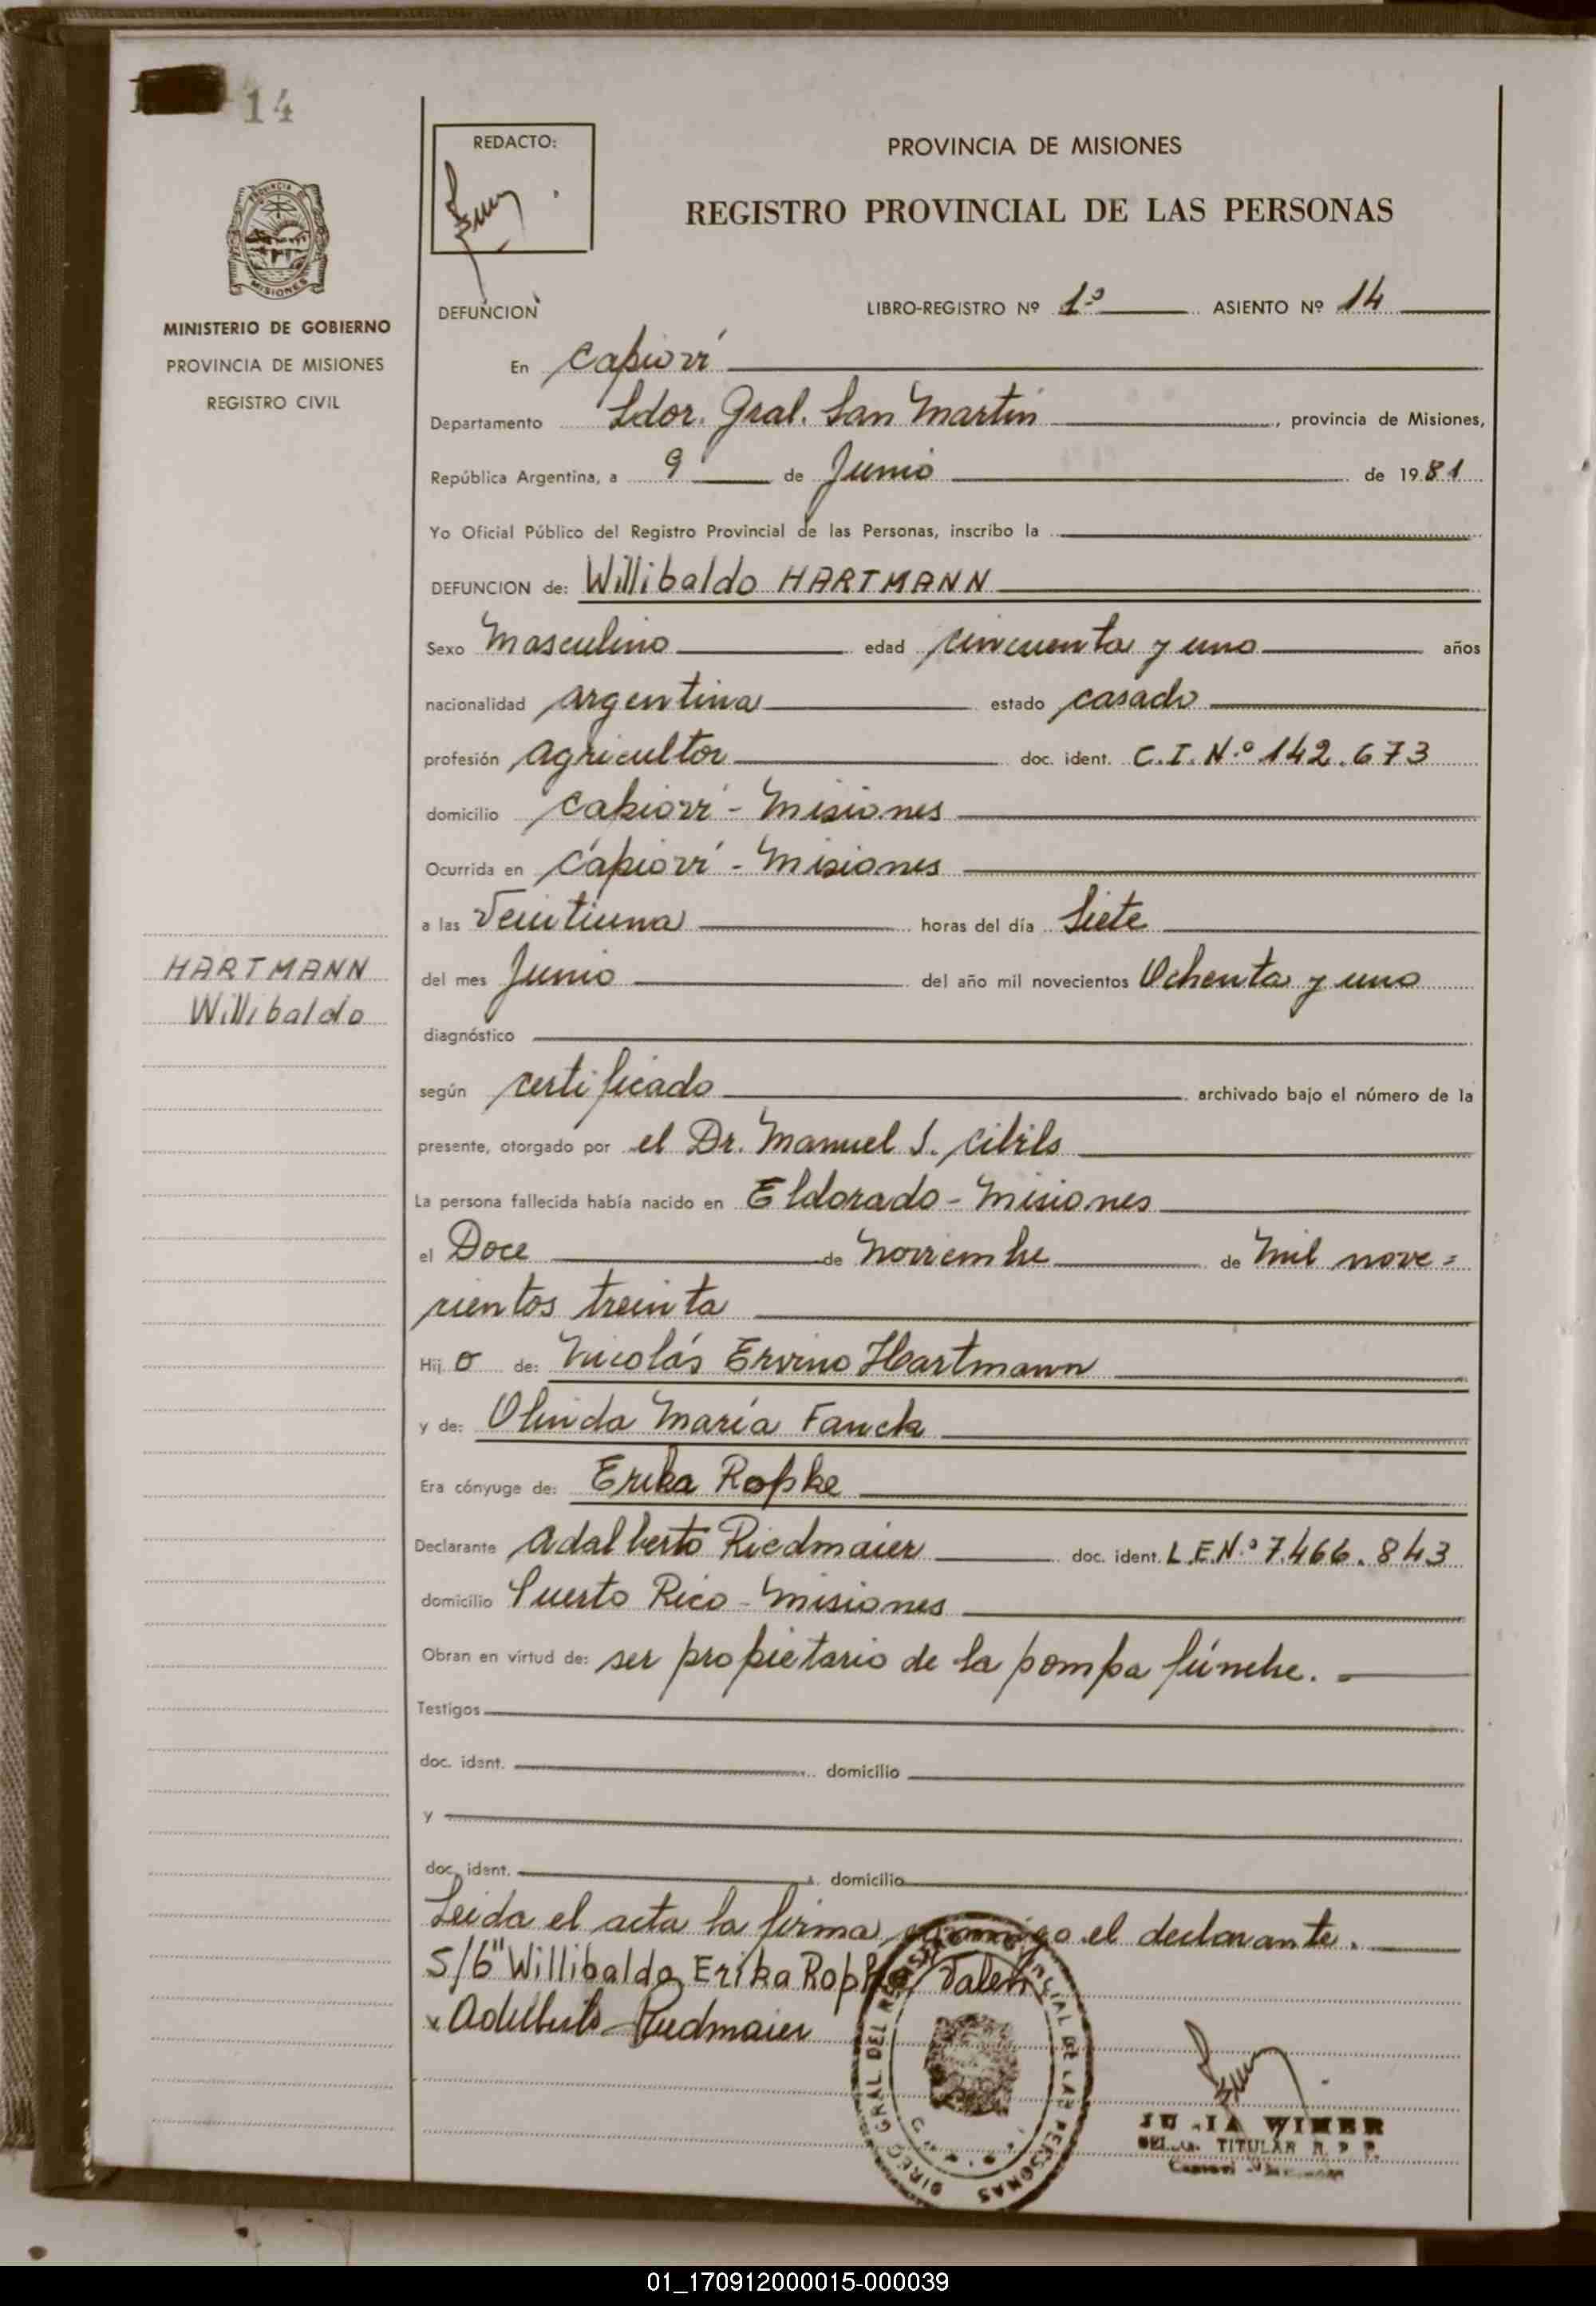 14
REDACTO:
PROVINCIA DE MISIONES
REGISTRO PROVINCIAL DE LAS PERSONAS
MISIONES
MINISTERIO DE GOBIERNO
PROVINCIA DE MISIONES
REGISTRO CIVIL
DEFUNCION
LIBRO-REGISTRO Nº 1º ASIENTO Nº 14
En Capioví
Departamento Ldor. Gral. San Martín, provincia de Misiones,
República Argentina, a 9 de Junio de 1981
Yo Oficial Público del Registro Provincial de las Personas, inscribo la
DEFUNCION de: Willibaldo HARTMANN
Sexo Masculino edad cincuenta y uno años
nacionalidad argentina estado casado
profesión agricultor doc. ident. C.I. Nº 142.673
domicilio Capioví - Misiones
Ocurrida en Capioví - Misiones
a las Veintiuna horas del día Siete
HARTMANN
Willibaldo
del mes Junio del año mil novecientos Ochenta y uno
diagnóstico
según certificado archivado bajo el número de la
presente, otorgado por el Dr. Manuel S. Cibils
La persona fallecida había nacido en Eldorado - Misiones
el Doce de Noviembre de Mil nove=
cientos treinta
Hijo de: Nicolás Ervino Hartmann
y de: Olinda María Fanck
Era cónyuge de: Erika Ropke
Declarante Adalberto Riedmaier doc. ident. L.E.Nº 7.466.843
domicilio Puerto Rico - Misiones
Obran en virtud de: ser propietario de la pompa fúnebre.
Testigos
doc. ident. domicilio
y
doc. ident. domicilio
Leida el acta la firma conmigo el declarante.
S/b "Willibaldo, Erika Ropke" Valen
x Adalberto Riedmaier
DIREC. GRAL. DEL REGISTRO PROVINCIAL DE LAS PERSONAS
WINER
TITULAR R. P. P.
01_170912000015-000039